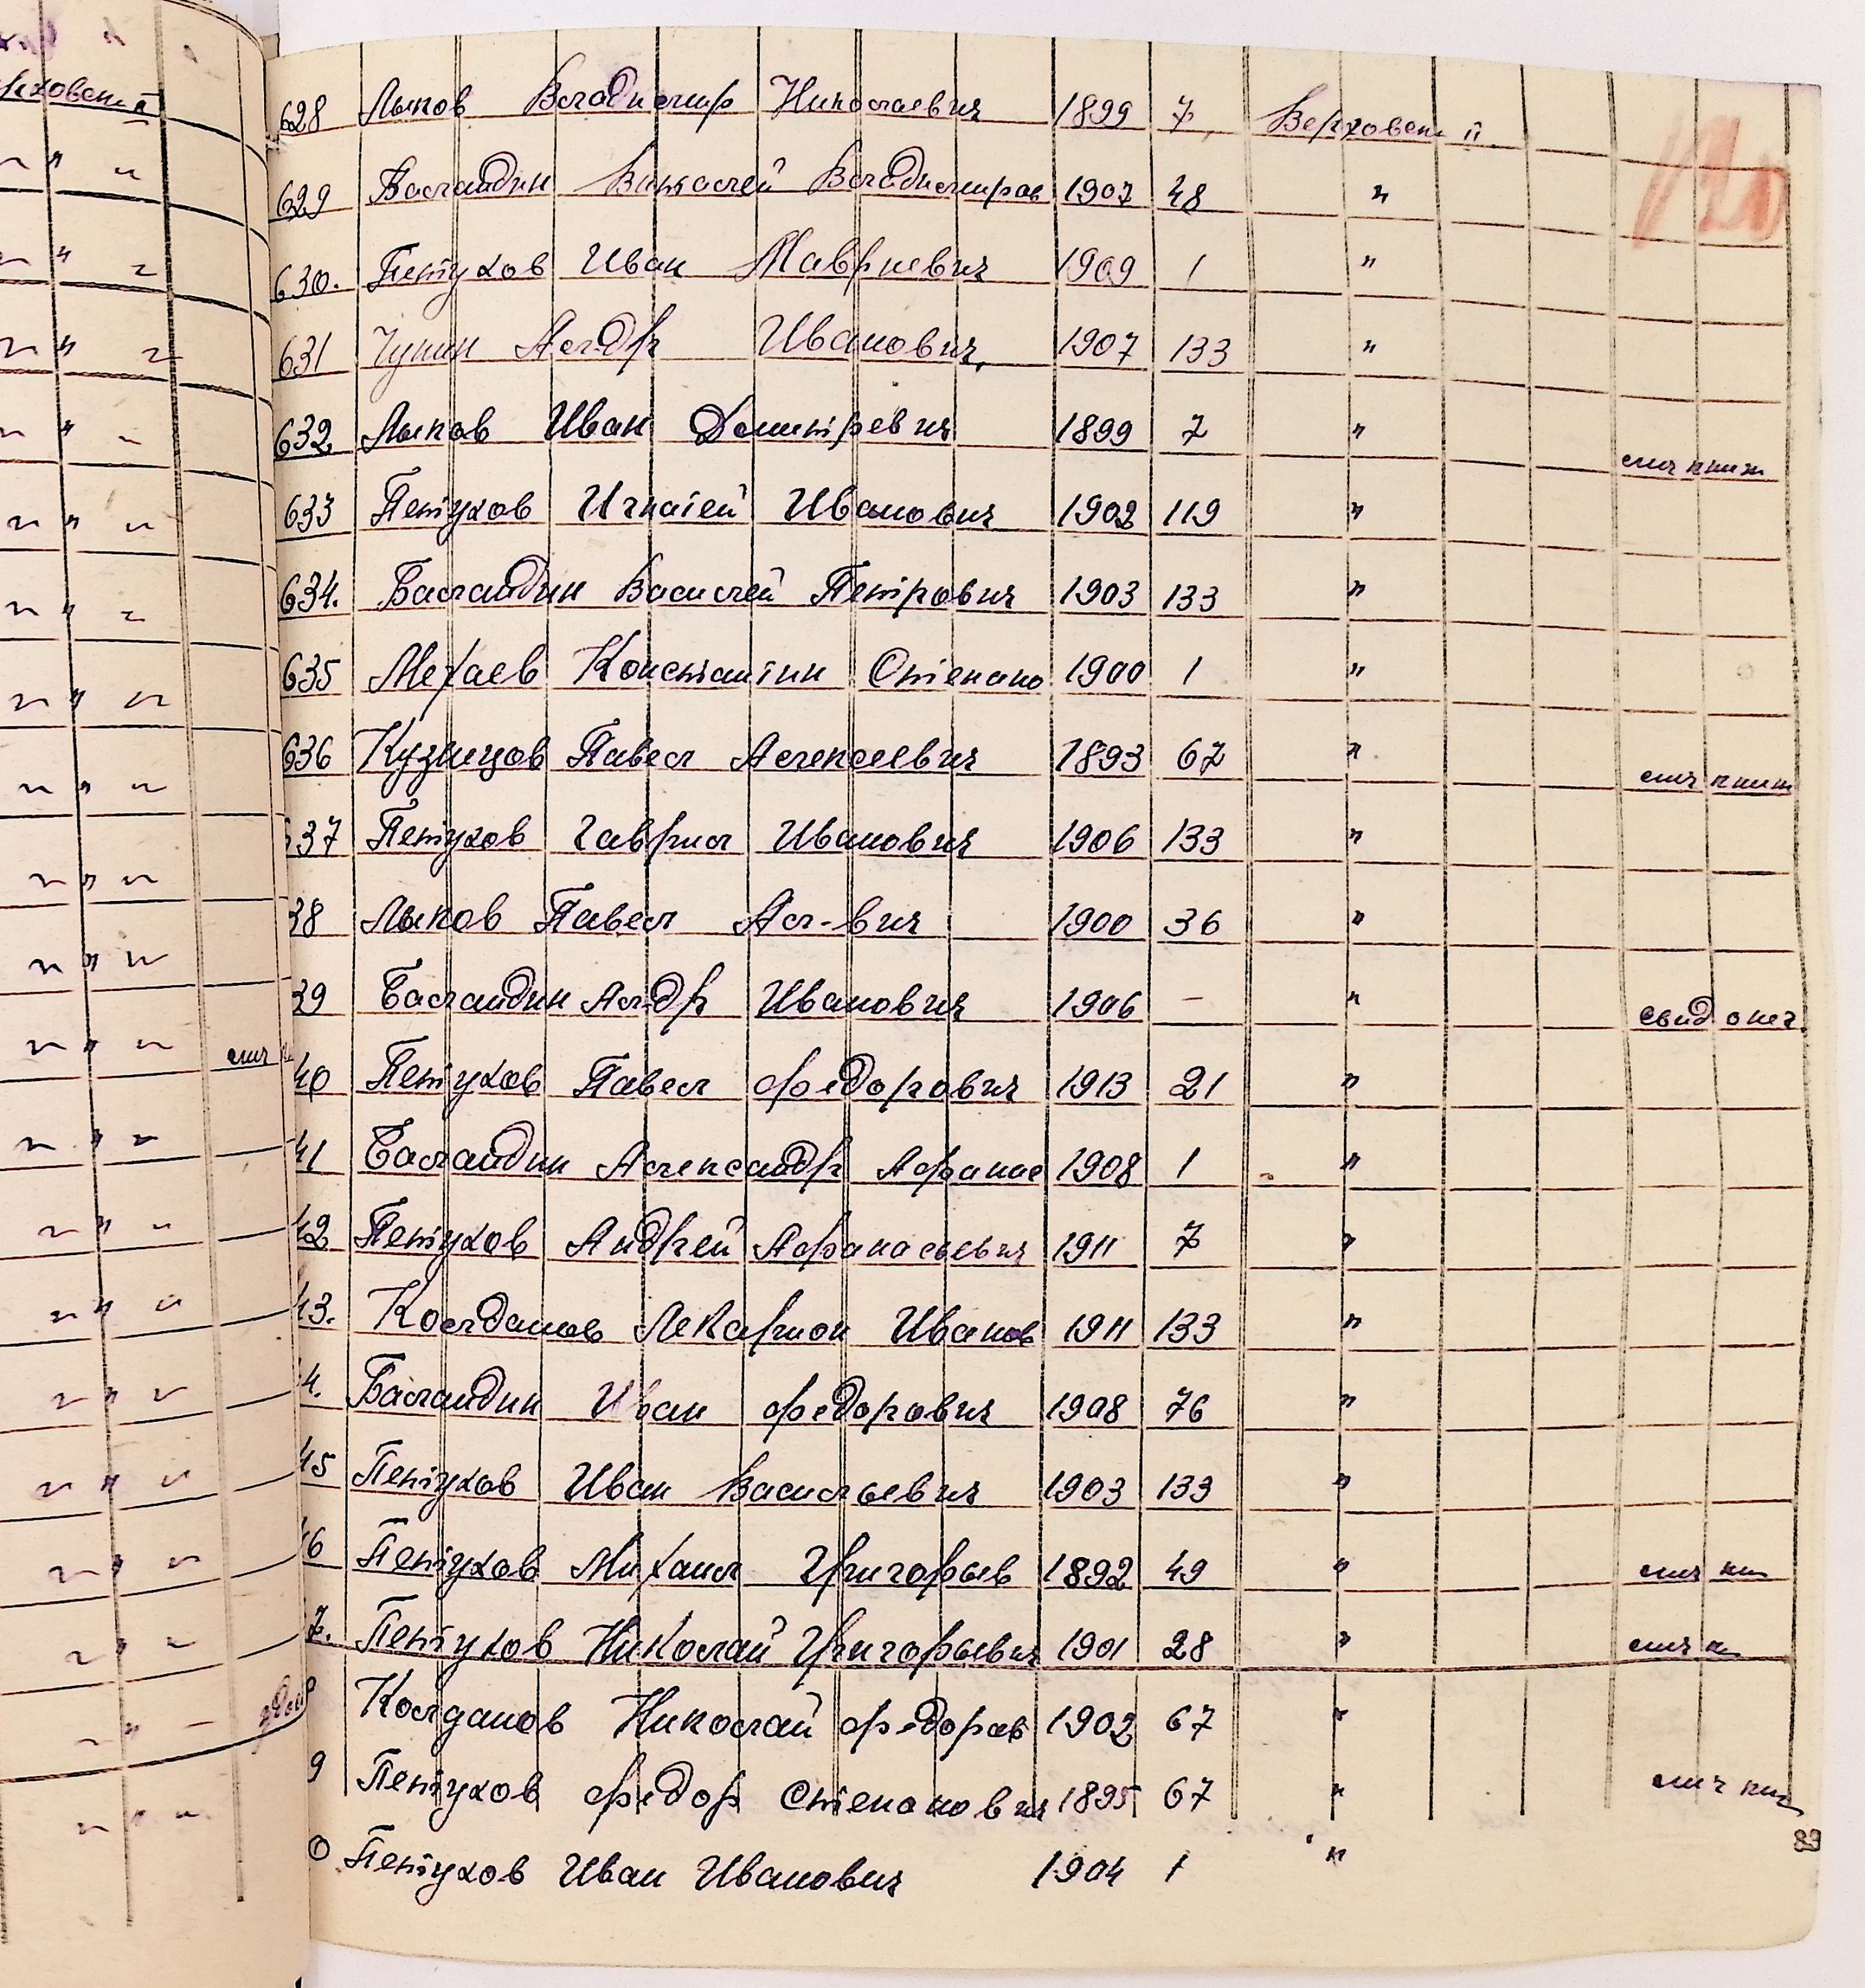 628 Лыков Владимир Николаевич 1899 7 Верховский
629 Баландин Виталей Владимиров 1907 48 "
630. Петухов Иван Мавриевич 1909 1 "
631 Чунин Ал-др Иванович 1907 133 "
632 Лыков Иван Дмитревич 1899 7 "
633 Петухов Игнатей Иванович 1902 119 " лич книж
634. Баландин Василей Петрович 1903 133 "
635 Мехаев Константин Степано 1900 1 "
636 Кузнецов Павел Алексеевич 1893 67 "
637 Петухов Гаврил Иванович 1906 133 " лич книж
38 Лыков Павел Ал-вич 1900 36 "
39 Баландин Ал-др Иванович 1906 — " свид о нег
40 Петухов Павел Федорович 1913 21 "
41 Баландин Александр Афанас 1908 1 "
42 Петухов Андрей Афанасьевич 1911 7 "
43. Колданов Лекарион Иванов 1911 133 "
4. Баландин Иван Федорович 1908 76 "
45 Петухов Иван Васильевич 1903 133 "
46 Петухов Михаил Григорьев 1892 49 " лич кн
7. Петухов Николай Григорьевич 1901 28 " лич к
Колданов Николай Федоров 1902 67 "
9 Петухов Федор Степанович 1895 67 " лич кн
0 Петухов Иван Иванович 1904 1 "
89